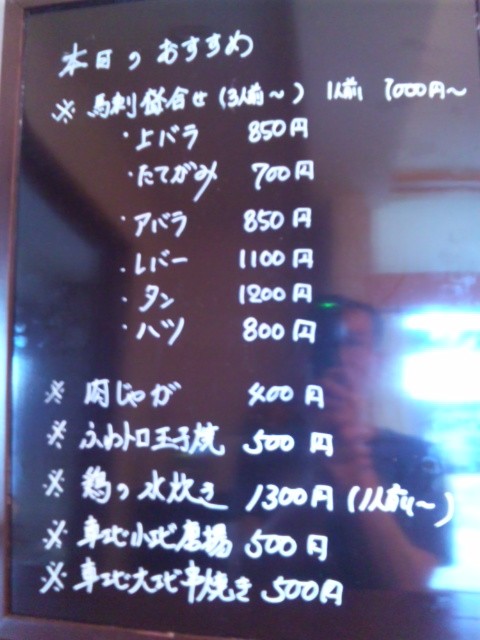 本日のおすすめ
※ 馬刺 盛合せ (3人前〜) 1人前 1000円〜
・上バラ 850円
・たてがみ 700円
・アバラ 850円
・レバー 1100円
・タン 1200円
・ハツ 800円
※ 肉じゃが 400円
※ ふわトロ玉子焼 500円
※ 鶏の水炊き 1300円 (1人前〜)
※ 車エビ 500円
※ 車エビ大エビ串焼き 500円